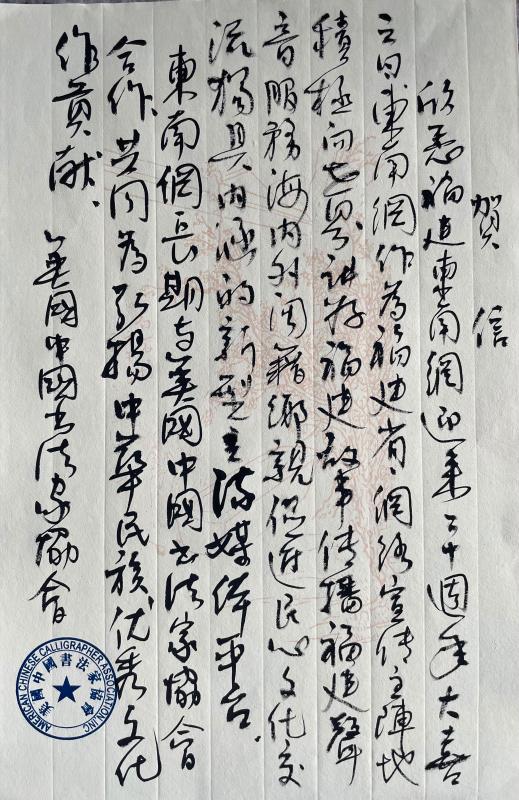 賀信
欣悉福建東南網迎来二十週年大喜
之日東南網作為福建省網絡宣传主陣地
積極向世界讲好福建故事传播福建聲
音服務海内外闽籍鄉親促进民心文化交
流獨具内涵的新型主流媒体平台、
東南網長期与美國中國书法家協會
合作、共同為弘揚中華民族优秀文化
作貢献、
美國中國书法家協會
AMERICAN CHINESE CALLIGRAPHER ASSOCIATION INC
美國中國書法家協會